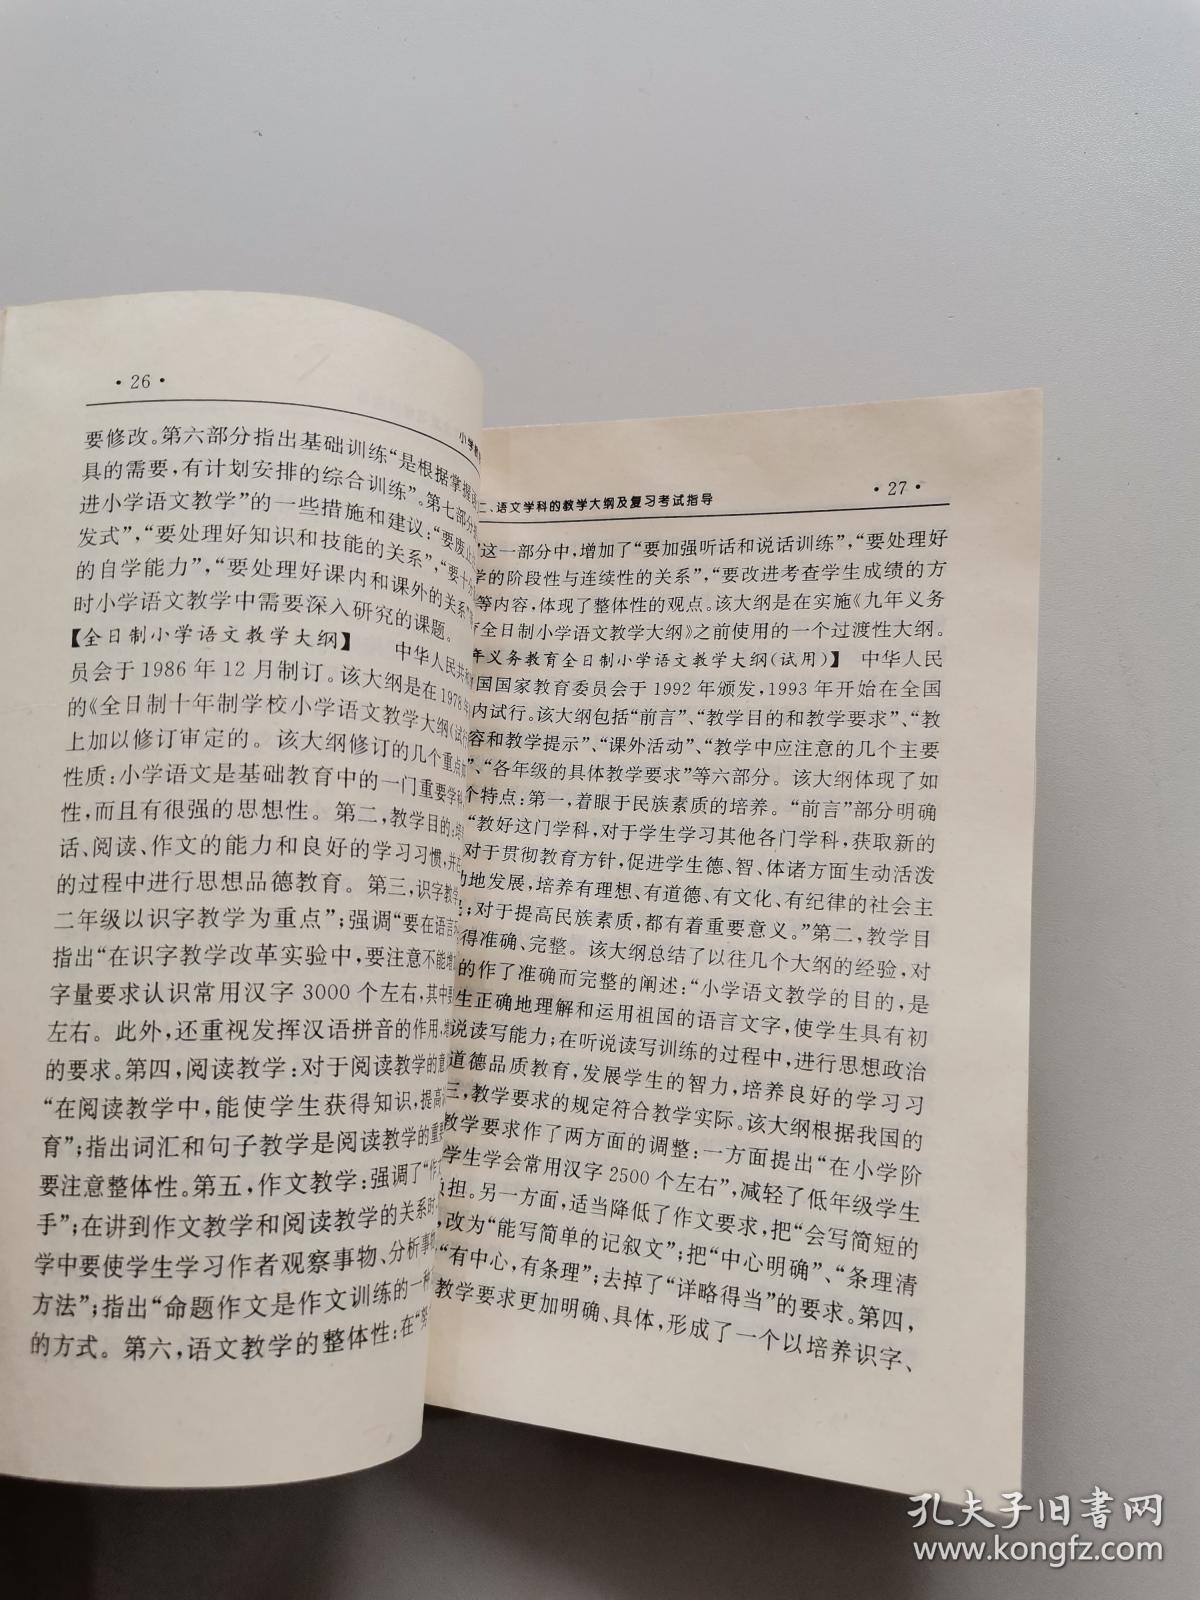 · 26 ·
小学教
要修改。第六部分指出基础训练“是根据掌握
具的需要,有计划安排的综合训练”。第七部分
进小学语文教学”的一些措施和建议:“要废止
发式”,“要处理好知识和技能的关系”,“要十分
的自学能力”,“要处理好课内和课外的关系”
时小学语文教学中需要深入研究的课题。
【全日制小学语文教学大纲】 中华人民共和
员会于1986年12月制订。该大纲是在1978年
的《全日制十年制学校小学语文教学大纲(试行
上加以修订审定的。该大纲修订的几个重点
性质:小学语文是基础教育中的一门重要学科,
性,而且有很强的思想性。第二,教学目的:培
话、阅读、作文的能力和良好的学习习惯,并在
的过程中进行思想品德教育。第三,识字教学
二年级以识字教学为重点”;强调“要在语言
指出“在识字教学改革实验中,要注意不能增
字量要求认识常用汉字3000个左右,其中要
左右。此外,还重视发挥汉语拼音的作用,增
的要求。第四,阅读教学:对于阅读教学的意
“在阅读教学中,能使学生获得知识,提高
育”;指出词汇和句子教学是阅读教学的重要
要注意整体性。第五,作文教学:强调了“作
手”;在讲到作文教学和阅读教学的关系时
学中要使学生学习作者观察事物、分析事物
方法”;指出“命题作文是作文训练的一种
的方式。第六,语文教学的整体性:在“努
二、语文学科的教学大纲及复习考试指导
· 27 ·
”这一部分中,增加了“要加强听话和说话训练”,“要处理好
学的阶段性与连续性的关系”,“要改进考查学生成绩的方
等内容,体现了整体性的观点。该大纲是在实施《九年义务
育全日制小学语文教学大纲》之前使用的一个过渡性大纲。
年义务教育全日制小学语文教学大纲(试用)】 中华人民
国国家教育委员会于1992年颁发,1993年开始在全国
内试行。该大纲包括“前言”、“教学目的和教学要求”、“教
容和教学提示”、“课外活动”、“教学中应注意的几个主要
”、“各年级的具体教学要求”等六部分。该大纲体现了如
个特点:第一,着眼于民族素质的培养。“前言”部分明确
“教好这门学科,对于学生学习其他各门学科,获取新的
对于贯彻教育方针,促进学生德、智、体诸方面生动活泼
动地发展,培养有理想、有道德、有文化、有纪律的社会主
;对于提高民族素质,都有着重要意义。”第二,教学目
得准确、完整。该大纲总结了以往几个大纲的经验,对
的作了准确而完整的阐述:“小学语文教学的目的,是
生正确地理解和运用祖国的语言文字,使学生具有初
说读写能力;在听说读写训练的过程中,进行思想政治
道德品质教育,发展学生的智力,培养良好的学习习
三,教学要求的规定符合教学实际。该大纲根据我国的
教学要求作了两方面的调整:一方面提出“在小学阶
学生学会常用汉字2500个左右”,减轻了低年级学生
担。另一方面,适当降低了作文要求,把“会写简短的
,改为“能写简单的记叙文”;把“中心明确”、“条理清
“有中心,有条理”;去掉了“详略得当”的要求。第四,
教学要求更加明确、具体,形成了一个以培养识字、
孔夫子旧书网
www.kongfz.com